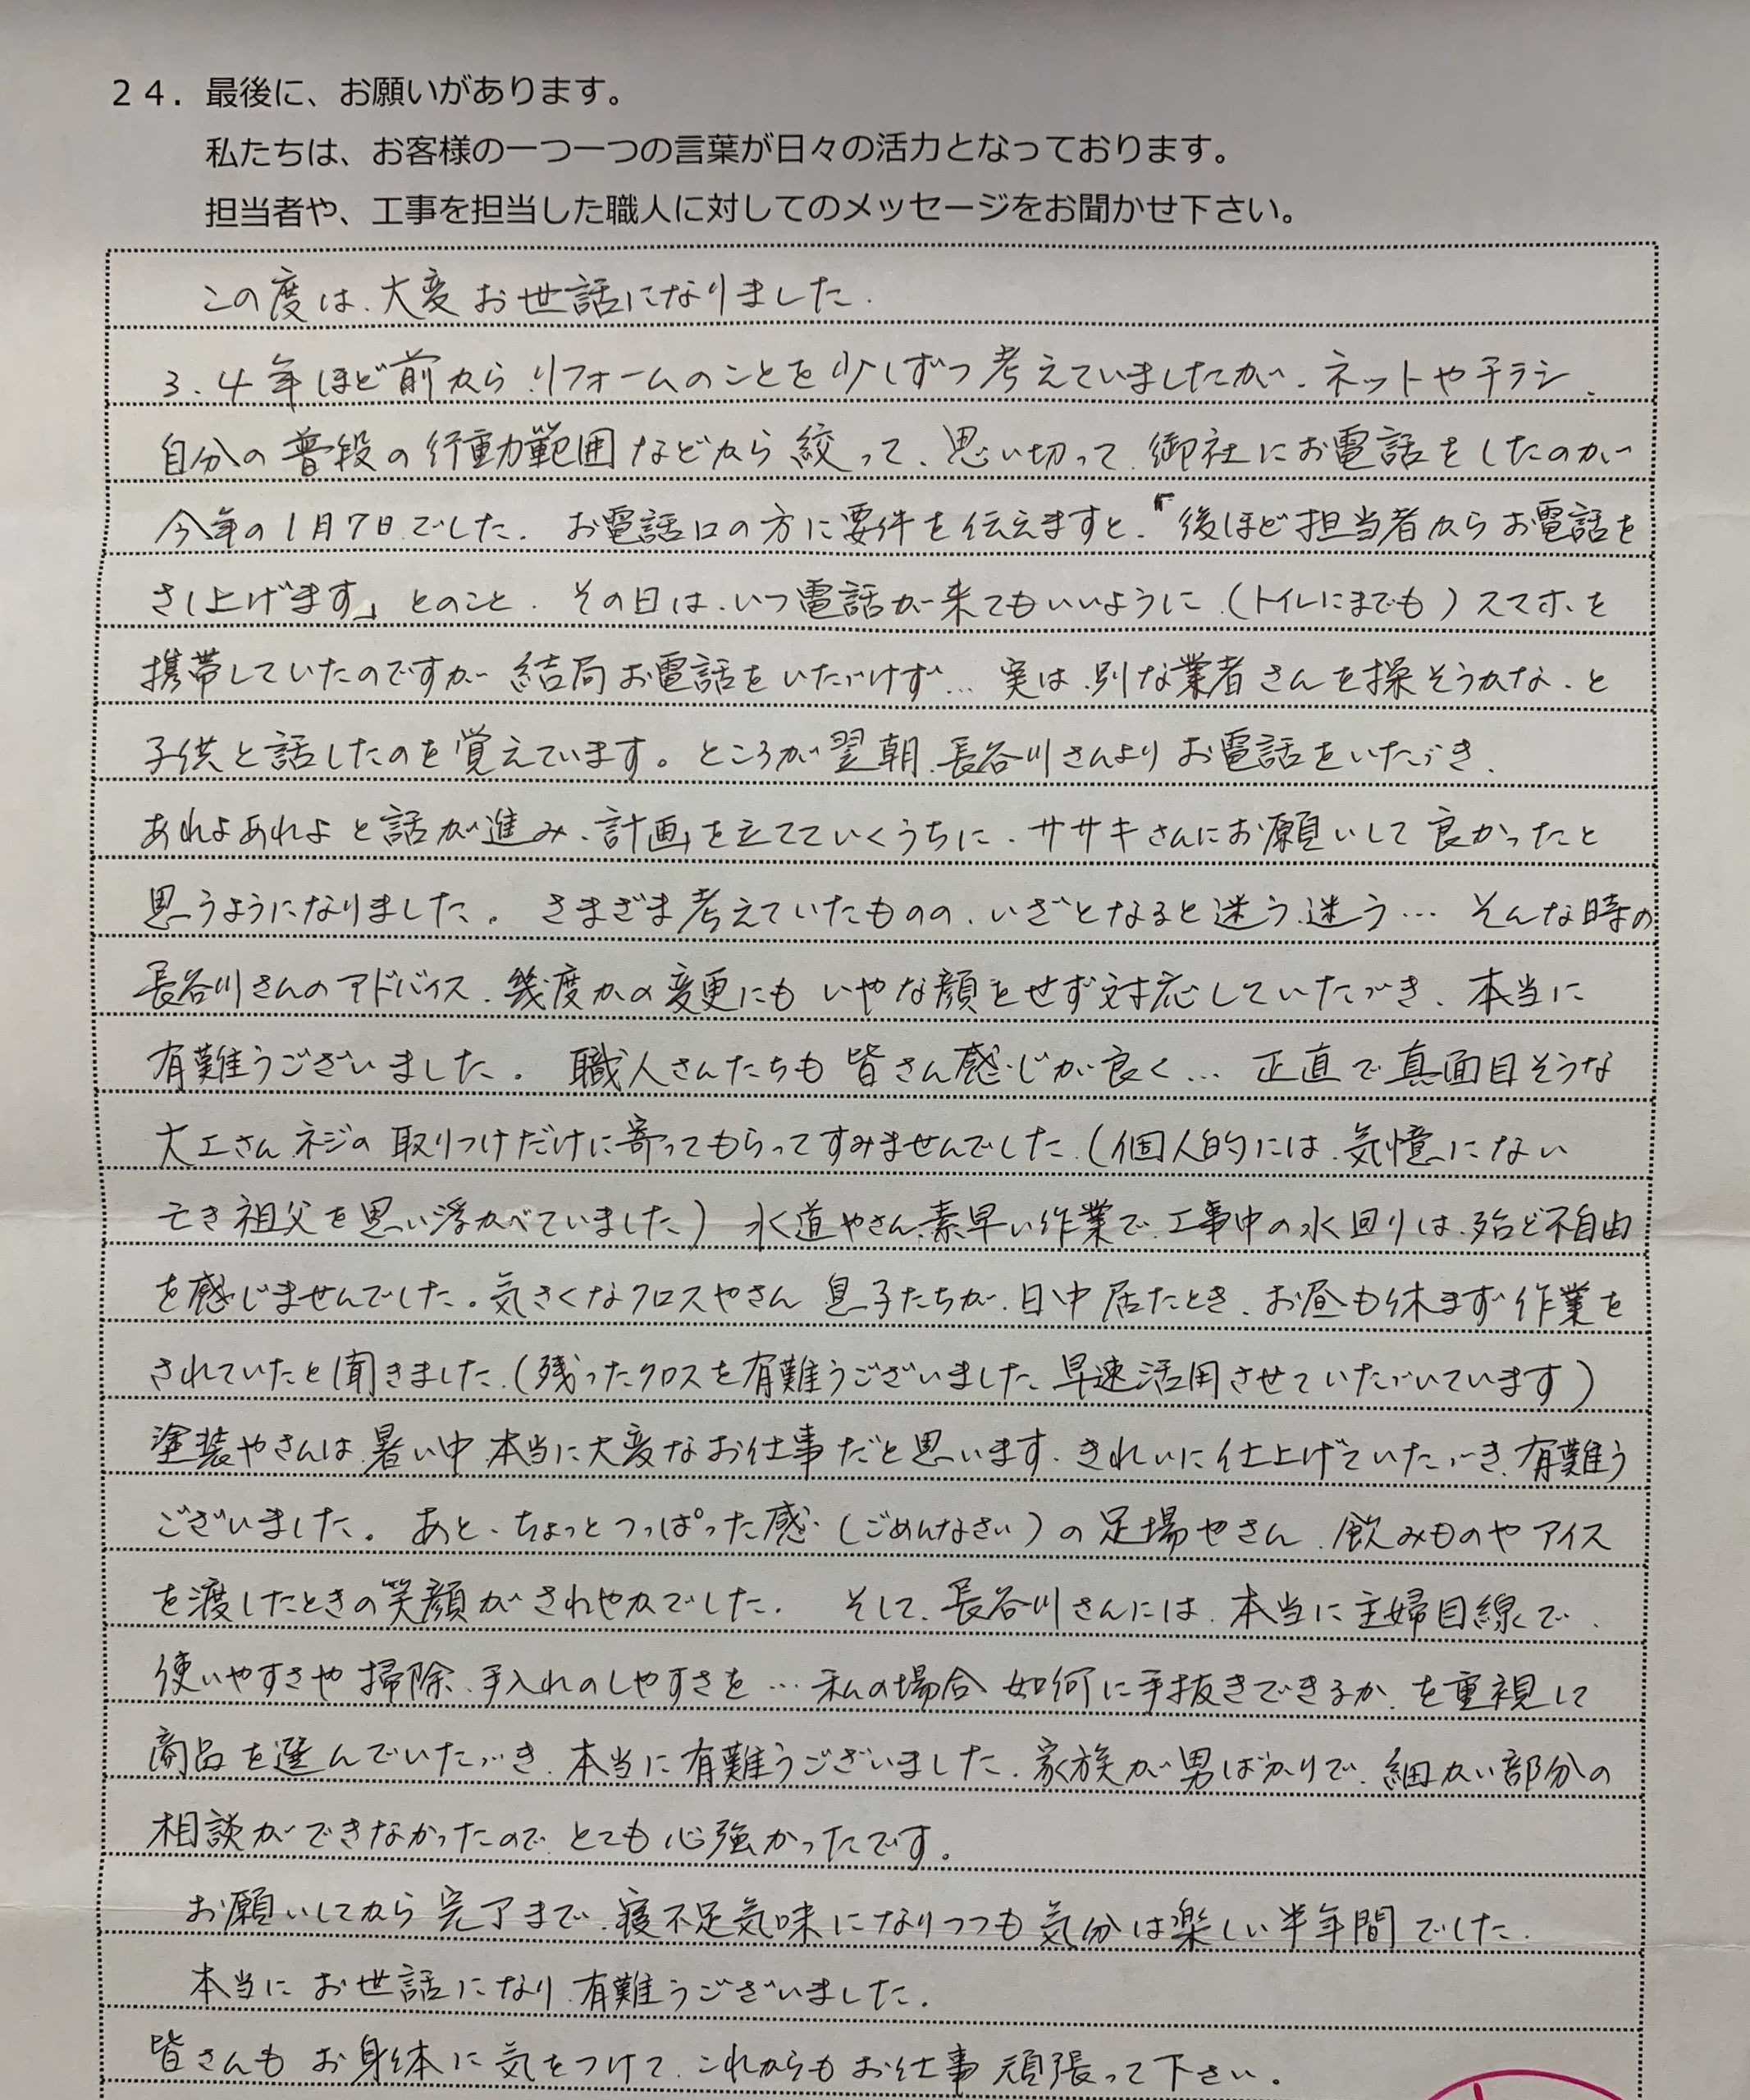 ２４．最後に、お願いがあります。
私たちは、お客様の一つ一つの言葉が日々の活力となっております。
担当者や、工事を担当した職人に対してのメッセージをお聞かせ下さい。
この度は、大変お世話になりました。
3、4年ほど前から、リフォームのことを少しずつ考えていましたが、ネットやチラシ、
自分の普段の行動範囲などから絞って、思い切って、御社にお電話をしたのが
今年の1月7日でした。お電話口の方に要件を伝えますと、「後ほど担当者からお電話を
さし上げます」とのこと。その日は、いつ電話が来てもいいように、(トイレにまでも)スマホを
携帯していたのですが結局お電話をいただけず…実は、別な業者さんを探そうかな、と
子供と話したのを覚えています。ところが翌朝、長谷川さんよりお電話をいただき、
あれよあれよと話が進み、計画を立てていくうちに、ササキさんにお願いして良かったと
思うようになりました。さまざま考えていたものの、いざとなると迷う、迷う…そんな時の
長谷川さんのアドバイス、幾度かの変更にもいやな顔をせず対応していただき、本当に
有難うございました。職人さんたちも皆さん感じが良く…正直で真面目そうな
大工さんネジの取りつけだけに寄ってもらってすみませんでした。(個人的には、気憶にない
亡き祖父を思い浮かべていました)水道やさん、素早い作業で、工事中の水回りは、殆ど不自由
を感じませんでした。気さくなクロスやさん息子たちが、日中居たとき、お昼も休まず作業を
されていたと聞きました。(残ったクロスを有難うございました、早速活用させていただいています)
塗装やさんは、暑い中、本当に大変なお仕事だと思います。きれいに仕上げていただき、有難う
ございました。あと、ちょっとつっぱった感じ(ごめんなさい)の足場やさん、飲みものやアイス
を渡したときの笑顔がさわやかでした。そして、長谷川さんには、本当に主婦目線で、
使いやすさや掃除、手入れのしやすさを…私の場合如何に手抜きできるか、を重視して
商品を選んでいただき、本当に有難うございました。家族が男ばかりで、細かい部分の
相談ができなかったので、とても心強かったです。
お願いしてから完了まで、寝不足気味になりつつも気分は楽しい半年間でした。
本当にお世話になり、有難うございました。
皆さんもお身体に気をつけて、これからもお仕事頑張って下さい。